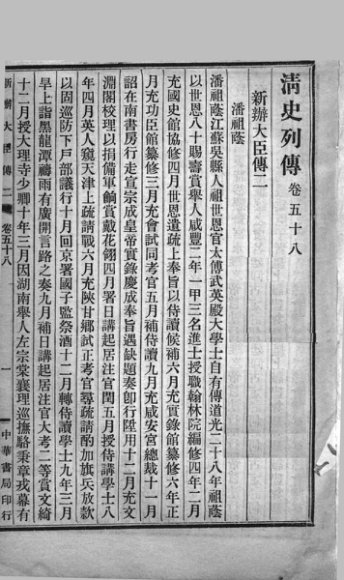 清史列傳 卷五十八
新辦大臣傳二
潘祖蔭
潘祖蔭江蘇吳縣人祖世恩官太傅武英殿大學士自有傳道光二十八年祖蔭
以世恩八十賜壽賞舉人咸豐二年一甲三名進士授職翰林院編修四年二月
充國史館協修四月世恩遺疏上奉旨以侍讀候補六月充實錄館纂修六年正
月充功臣館纂修三月充會試同考官五月補侍讀九月充咸安宮總裁十一月
詔在南書房行走宣宗成皇帝實錄慶成奉旨遇缺題奏卽行陞用十二月充文
淵閣校理以捐備軍餉賞戴花翎四月署日講起居注官閏五月授侍講學士八
年四月英人窺天津上疏請戰六月充陝甘鄉試正考官尋疏請酌加旗兵放款
以固巡防下戶部議行十月回京署國子監祭酒十二月轉侍讀學士九年三月
旱上詣黑龍潭禱雨有廣開言路之奏九月補日講起居注官大考二等賞文綺
十二月授大理寺少卿十年三月因湖南舉人左宗棠襄理巡撫駱秉章戎幕有
新辦大臣傳二
卷五十八
一
中華書局印行